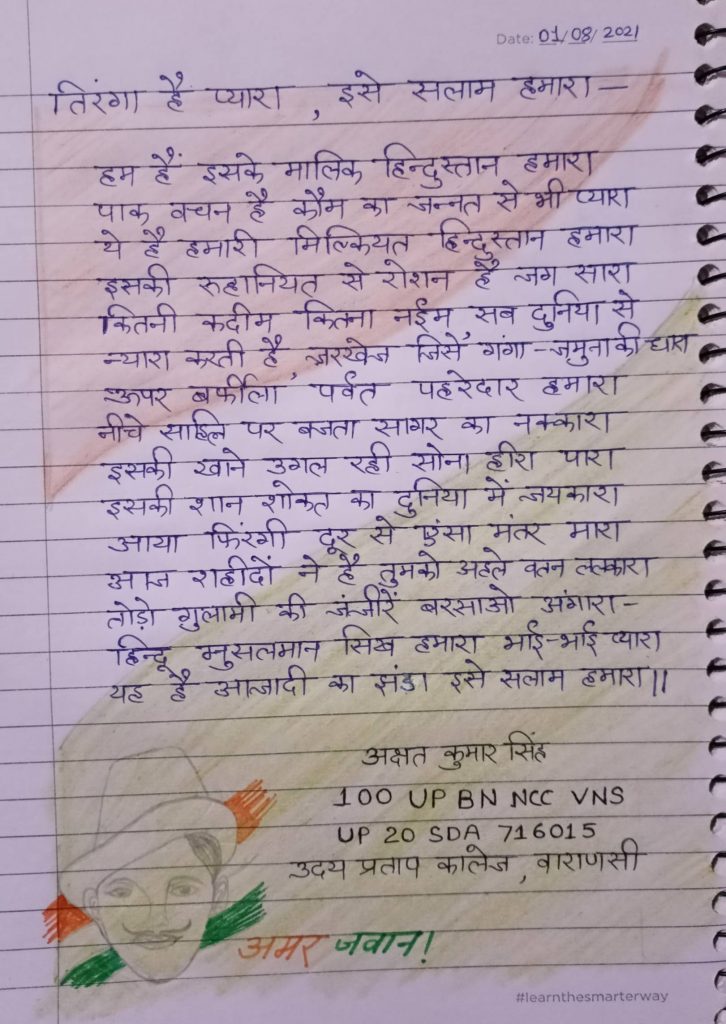 Date: 01/08/2021
तिरंगा है प्यारा , इसे सलाम हमारा –
हम हैं इसके मालिक हिन्दुस्तान हमारा
पाक वचन है कौम का जन्नत से भी प्यारा
ये है हमारी मिल्कियत हिन्दुस्तान हमारा
इसकी रुहानियत से रोशन है जग सारा
कितनी कदीम कितना नईम, सब दुनिया से
न्यारा करती है, जरखेज जिसे गंगा-जमुना की धारा
ऊपर बर्फीला पर्वत पहरेदार हमारा
नीचे साहिल पर बजता सागर का नक्कारा
इसकी खाने उगल रही सोना हीरा पारा
इसकी शान शौकत का दुनिया में जयकारा
आया फिरंगी दूर से एंसा मंतर मारा
आज शहीदों ने है तुमको अहले वतन ललकारा
तोड़ो गुलामी की जंजीरें बरसाओ अंगारा –
हिन्दू मुसलमान सिख हमारा भाई-भाई प्यारा
यह है आजादी का झंडा इसे सलाम हमारा॥
अक्षत कुमार सिंह
100 UP BN NCC VNS
UP 20 SDA 716015
उदय प्रताप कालेज, वाराणसी
अमर जवान!
#learnthesmarterway